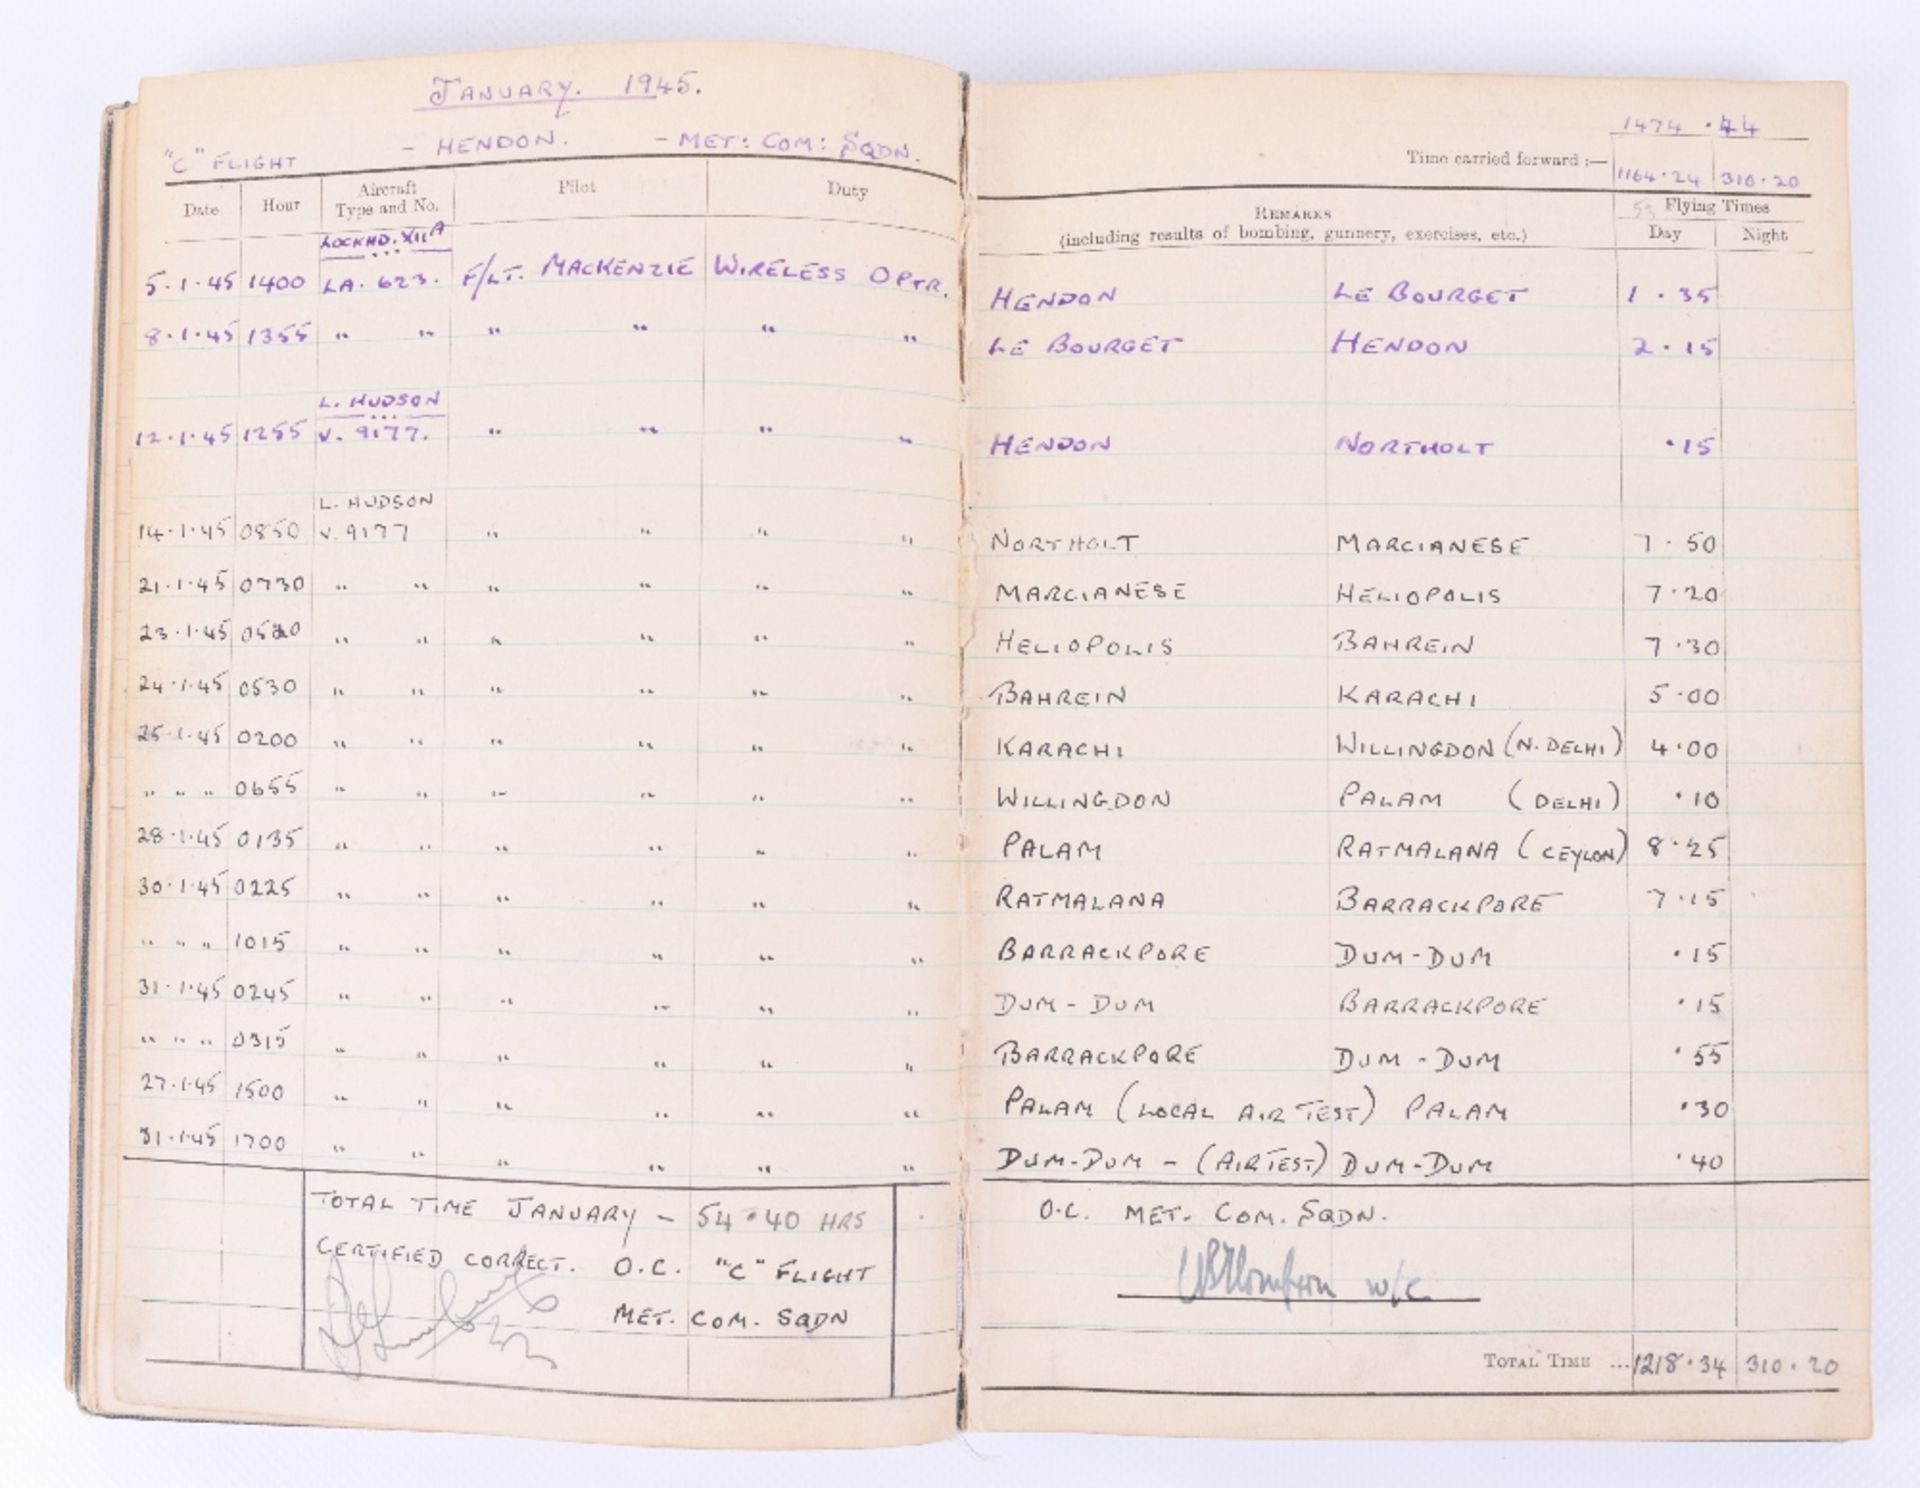 JANUARY. 1945.
"C" FLIGHT - HENDON. - MET: COM: SQDN.
1474 · 44
Time carried forward :— 1164·24 310·20
Date Hour Aircraft Type and No. Pilot Duty REMARKS (including results of bombing, gunnery, exercises, etc.) Flying Times Day Night
LOCKHD. XII A
5·1·45 1400 LA. 623. F/LT. MACKENZIE WIRELESS OPTR. HENDON LE BOURGET 1·35
8·1·45 1355 " " " " " " LE BOURGET HENDON 2·15
L. HUDSON
12·1·45 1255 V. 9177. " " " " HENDON NORTHOLT ·15
L. HUDSON
14·1·45 0850 V. 9177 " " " " NORTHOLT MARCIANESE 7·50
21·1·45 0730 " " " " " " MARCIANESE HELIOPOLIS 7·20
23·1·45 " " " " " " HELIOPOLIS BAHREIN 7·30
24·1·45 0530 " " " " " " BAHREIN KARACHI 5·00
25·1·45 0200 " " " " " " KARACHI WILLINGDON (N. DELHI) 4·00
" " " 0655 " " " " " " WILLINGDON PALAM (DELHI) ·10
28·1·45 0135 " " " " " " PALAM RATMALANA (CEYLON) 8·25
30·1·45 0225 " " " " " " RATMALANA BARRACKPORE 7·15
" " " 1015 " " " " " " BARRACKPORE DUM-DUM ·15
31·1·45 0245 " " " " " " DUM-DUM BARRACKPORE ·15
" " " 0315 " " " " " " BARRACKPORE DUM-DUM ·55
27·1·45 1500 " " " " " " PALAM (LOCAL AIR TEST) PALAM ·30
31·1·45 1700 " " " " " " DUM-DUM - (AIR TEST) DUM-DUM ·40
TOTAL TIME JANUARY - 54·40 HRS
CERTIFIED CORRECT. O.C. "C" FLIGHT
MET. COM. SQDN
O.C. MET. COM. SQDN.
W/C.
TOTAL TIME ... 1218·34 310·20